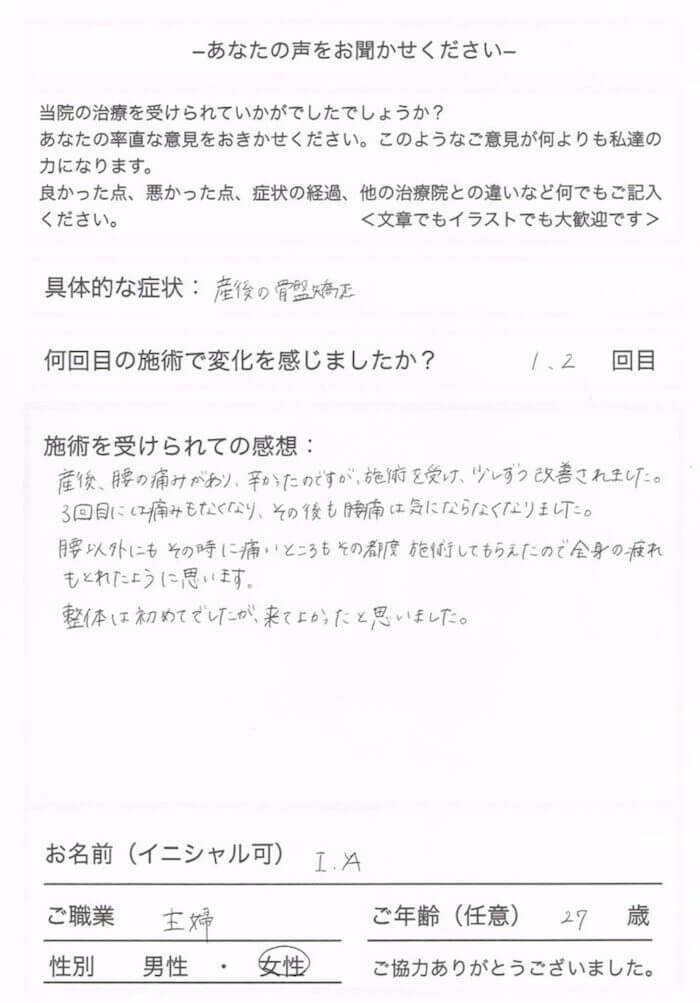 –あなたの声をお聞かせください–
当院の治療を受けられていかがでしたでしょうか？
あなたの率直な意見をおきかせください。このようなご意見が何よりも私達の
力になります。
良かった点、悪かった点、症状の経過、他の治療院との違いなど何でもご記入
ください。　＜文章でもイラストでも大歓迎です＞
具体的な症状： 産後の骨盤矯正
何回目の施術で変化を感じましたか？ 1、2 回目
施術を受けられての感想：
産後、腰の痛みがあり、辛かったのですが、施術を受け、少しずつ改善されました。
3回目には痛みもなくなり、その後も腰痛は気にならなくなりました。
腰以外にもその時に痛いところもその都度施術してもらえたので全身の疲れ
もとれたように思います。
整体は初めてでしたが、来てよかったと思いました。
お名前（イニシャル可） I.A
ご職業 主婦 ご年齢（任意） 27 歳
性別 男性 ・ 女性 ご協力ありがとうございました。